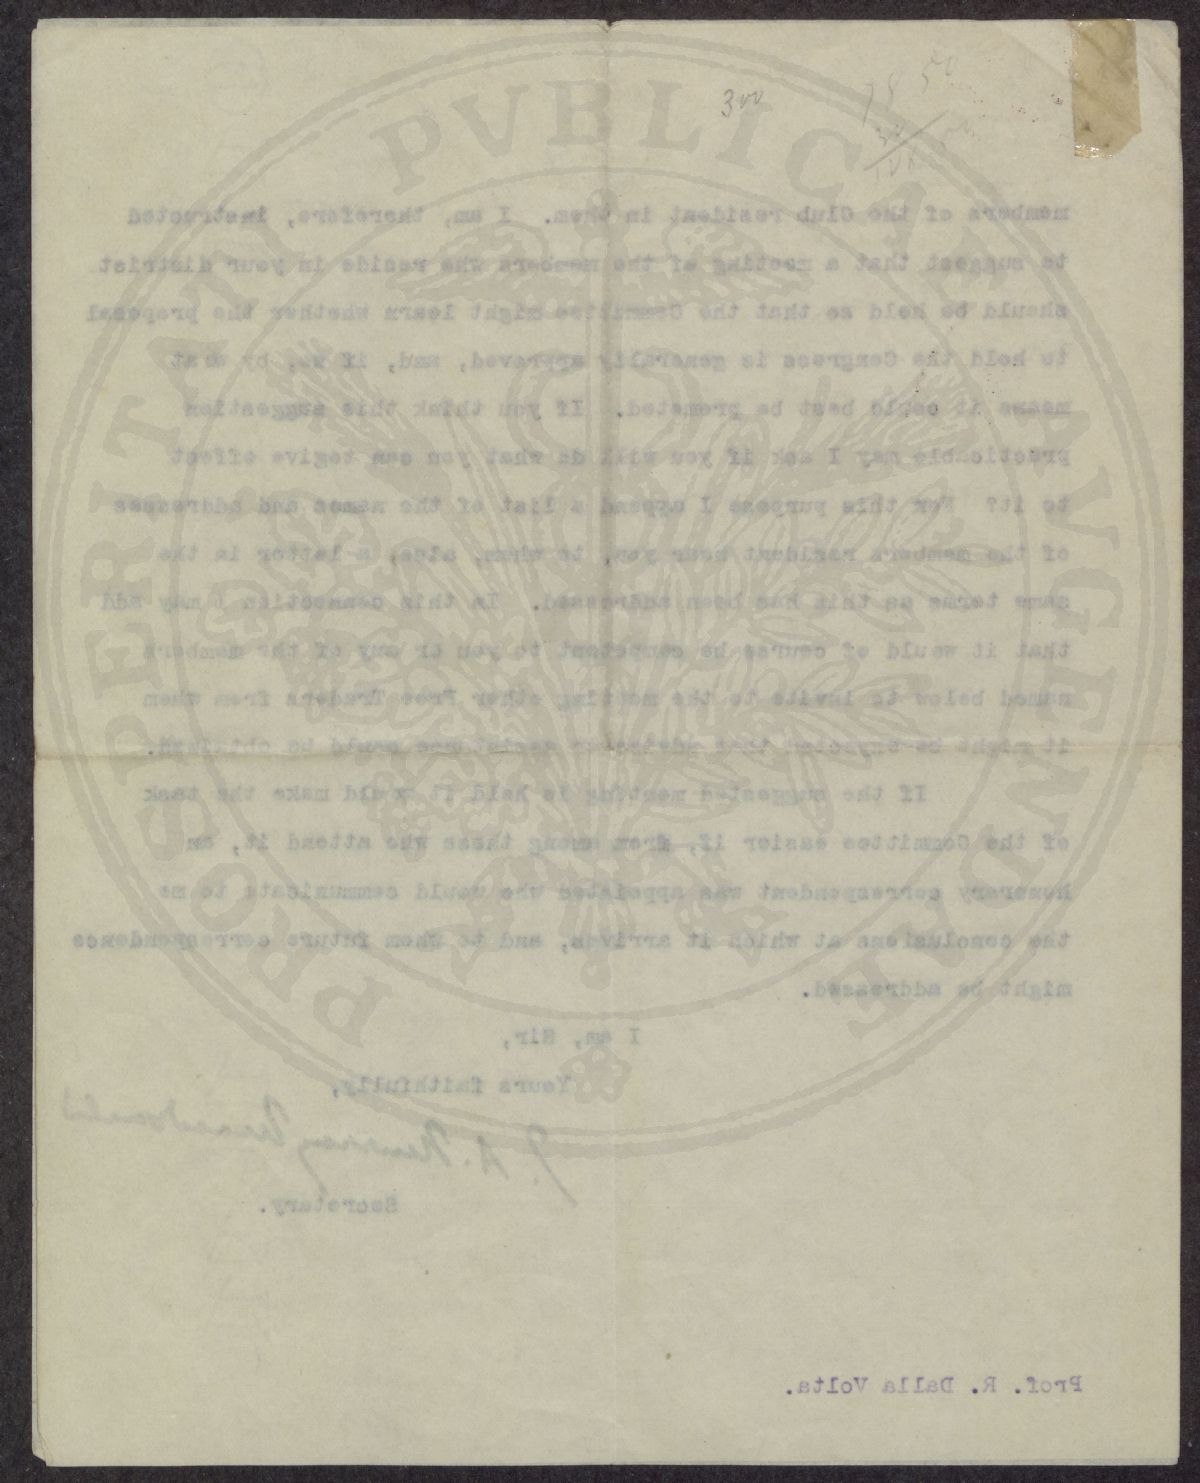 300
18 50
members of the Club resident in them. I am, therefore, instructed
to suggest that a meeting of the members who reside in your district
should be held so that the Committee might learn whether the proposal
to hold the Congress is generally approved, and, if so, by what
means it could best be promoted. If you think this suggestion
practicable may I ask if you will do what you can togive effect
to it? For this purpose I append a list of the names and addresses
of the members resident near you, to whom, also, a letter in the
same terms as this has been addressed. In this connection I may add
that it would of course be competent to you or any of the members
named below to invite to the meeting other Free Traders from whom
it might be expected that advice or assistance could be obtained.
If the suggested meeting is held it would make the task
of the Committee easier if, from among those who attend it, an
honorary correspondent was appointed who would communicate to me
the conclusions at which it arrives, and to whom future correspondence
might be addressed.
I am, Sir,
Yours faithfully,
J. A. Murray Macdonald
Secretary.
Prof. R. Dalla Volta.
PROSPERITATI PVBLICAE AVGENDAE